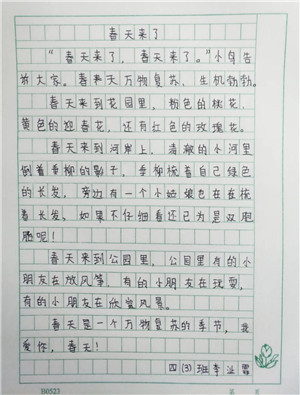 春天来了
“春天来了，春天来了。”小句告
诉大家。春天万物复苏、生机勃勃。
春天来到花园里，粉色的桃花，
黄色的迎春花，还有红色的玫瑰花。
春天来到河岸上，清澈的小河里
倒着垂柳的影子，垂柳梳着自己绿色
的长发，旁边有一个小姑娘也在在梳
着长发，如果不仔细看还已为是双胞
胞呢！
春天来到公园里，公园里有的小
朋友在放风筝，有的小朋友在玩耍，
有的小朋友在欣赏风景。
春天是一个万物复苏的季节，我
爱你，春天！
四(3)班李
B0523
第 页